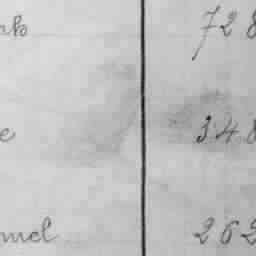 ak 728
e 348
mel 262